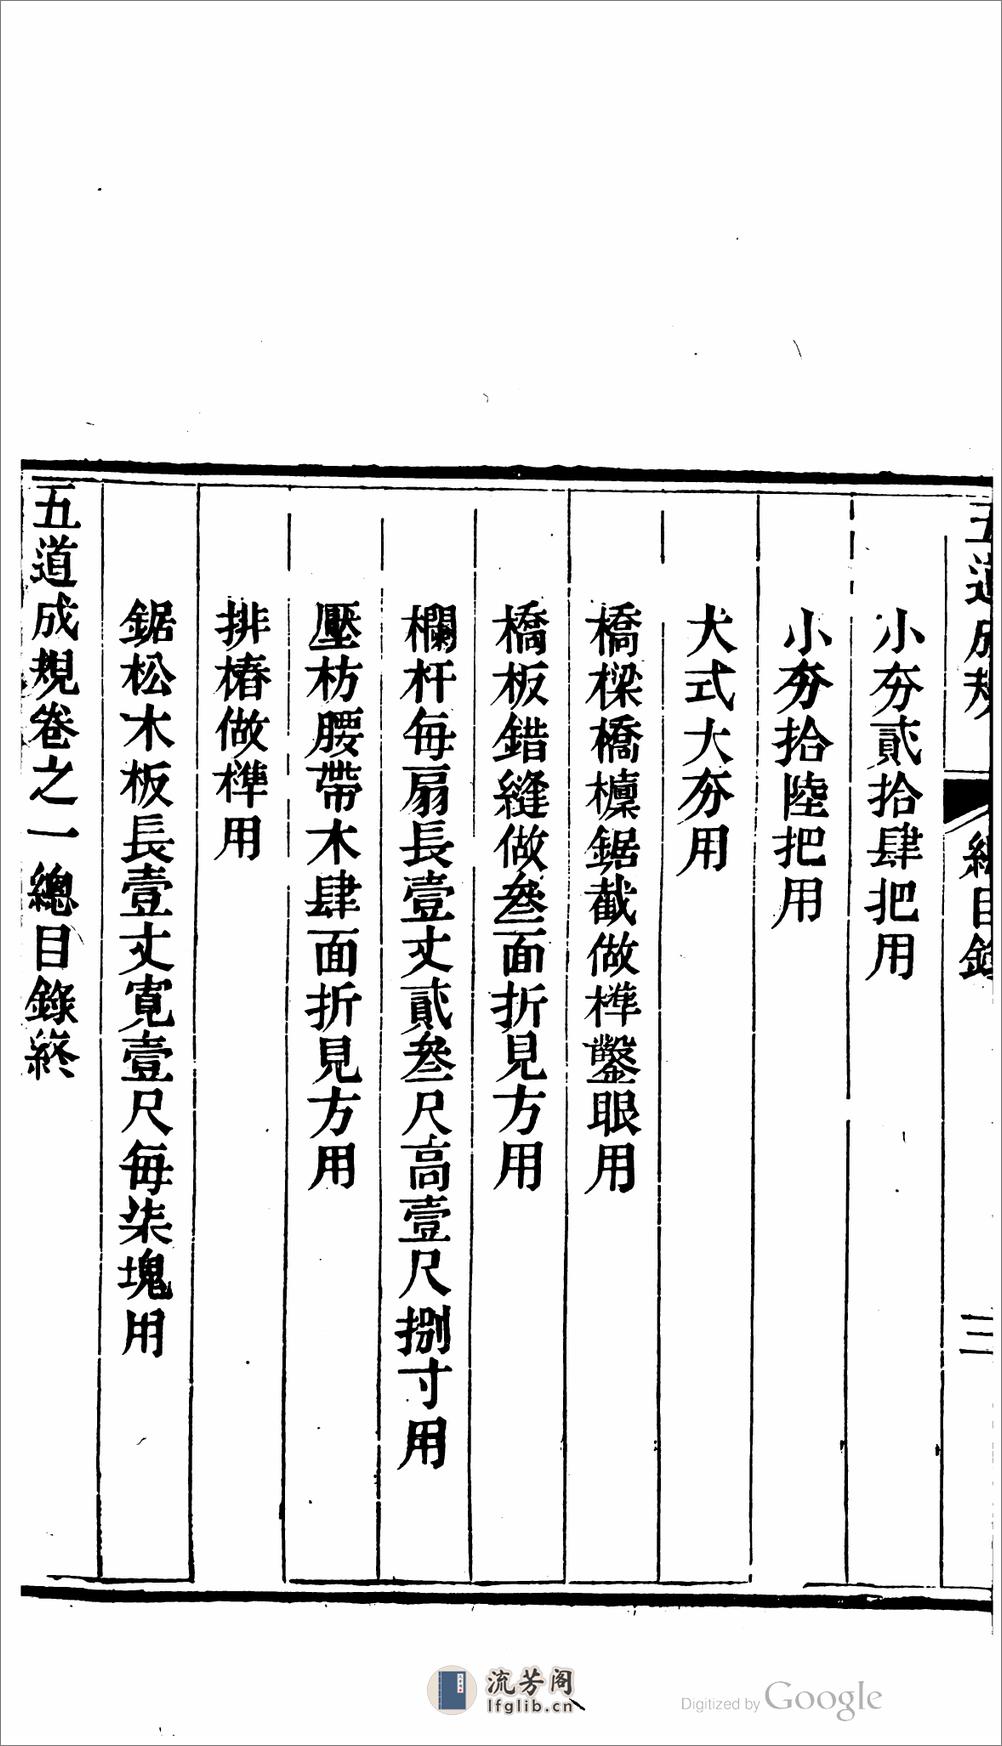 五道成規 總目錄 三
小夯貳拾肆把用
小夯拾陸把用
大式大夯用
橋樑橋檁鋸截做榫鑿眼用
橋板錯縫做叄面折見方用
欄杆每扇長壹丈貳叄尺高壹尺捌寸用
壓枋腰帶木肆面折見方用
排樁做榫用
鋸松木板長壹丈寬壹尺每柒塊用
五道成規卷之一總目錄終
流芳阁
lfglib.cn
Digitized by Google